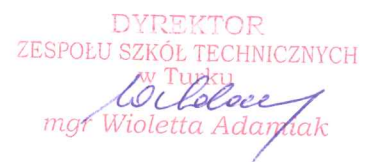 DYREKTOR
ZESPOŁU SZKÓŁ TECHNICZNYCH
w Turku
mgr Wioletta Adamiak